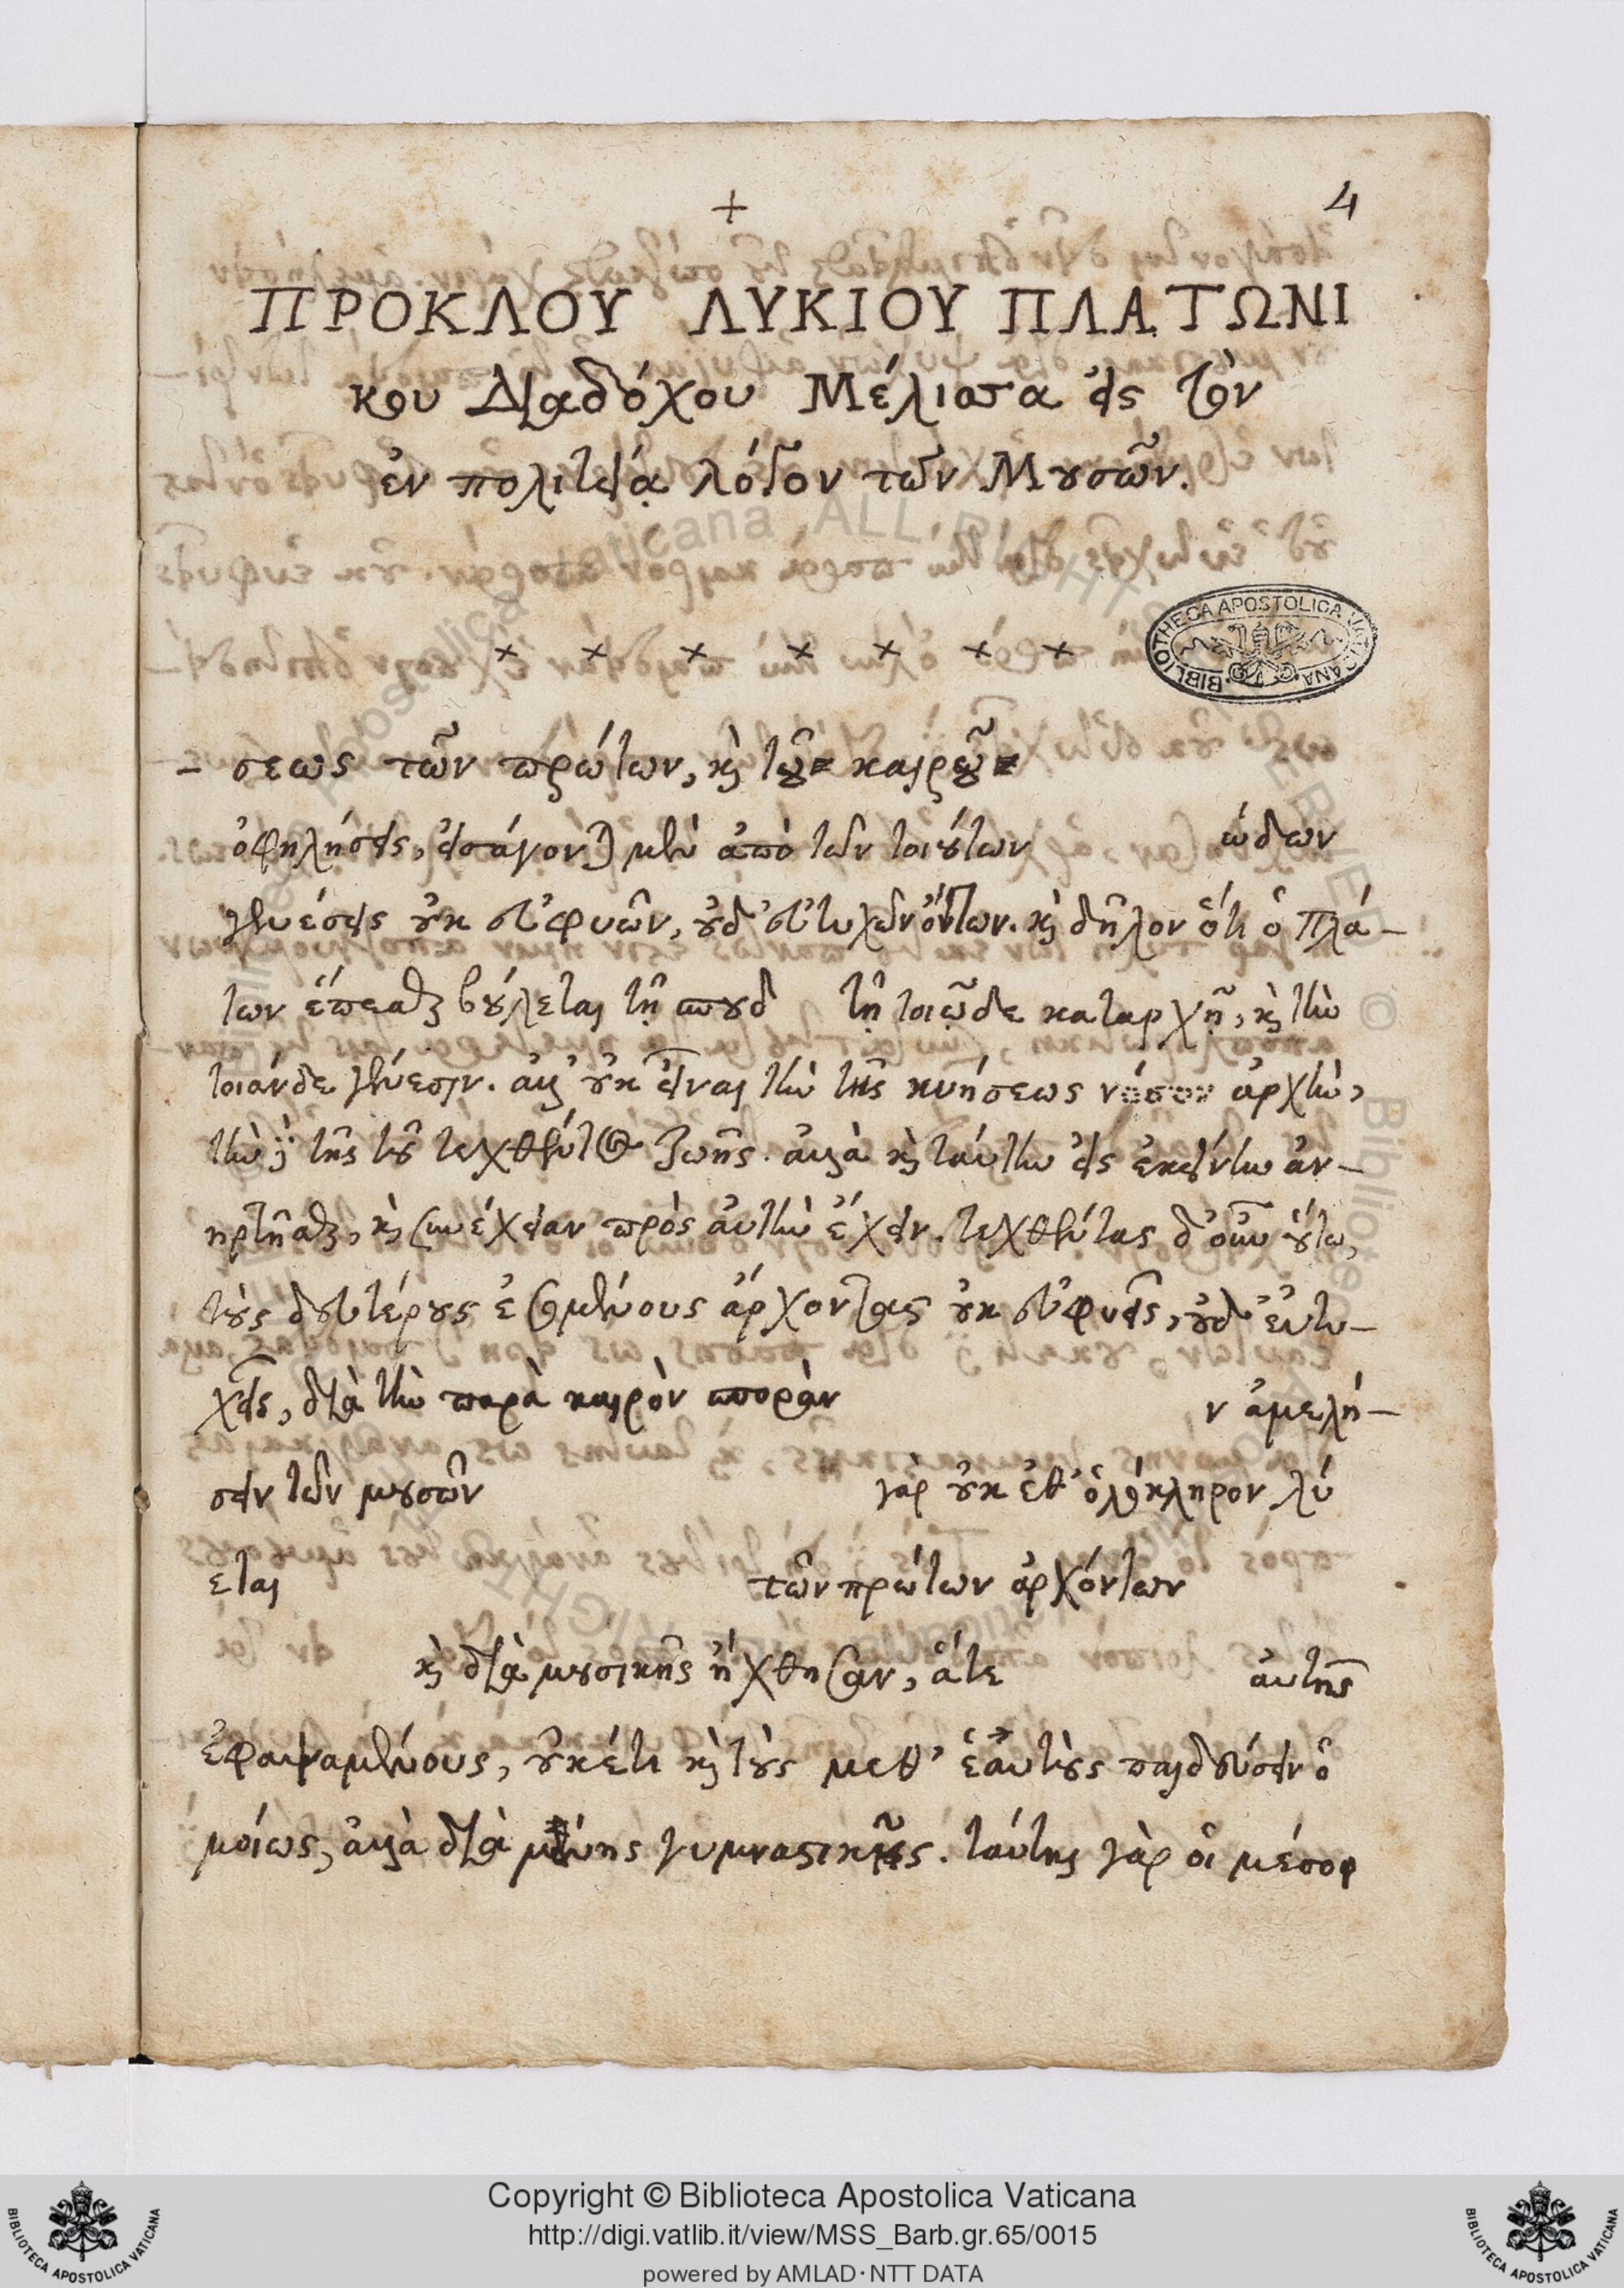 +
4
ΠΡΟΚΛΟΥ ΛΥΚΙΟΥ ΠΛΑΤΩΝΙ
κου Διαδόχου Μέλισσα εἰς τὸν
ἐν πολιτείᾳ λόγον τῶν Μουσῶν.
× × × × × × ×
- σεως τῶν πρώτων, καὶ τοῦ καιροῦ
ἀπὸ τῶν τοιούτων ώδων
γενέσεις οὐκ εὐφυῶν, οὐδ' εὐτυχῶν ὄντων. καὶ δῆλον ὅτι ὁ Πλά-
των ἕπεσθαι βούλεται τῇ σπουδ τῇ τοιᾷδε καταρχῇ, καὶ τὴν
τοιάνδε γένεσιν. ἀλλ' οὐκ εἶναι τὴν τῆς κυήσεως μόνον ἀρχὴν,
τὴν δὲ τῆς τοῦ τεχθέντος ζωῆς. ἀλλὰ καὶ ταύτην εἰς ἐκείνην ἀν-
ηρτῆσθαι, καὶ συνέχειαν πρὸς αὐτὴν ἔχειν. τεχθέντας δ' οὖν οὕτω,
τοὺς δευτέρους ἐσομένους ἄρχοντας οὐκ εὐφυεῖς, οὐδ' εὐτυ-
χεῖς, διὰ τὴν παρὰ καιρὸν σπορὰν ν ἀμελή-
σειν τῶν μουσῶν γὰρ οὐκ ἐθ' ὁλόκληρον λύ
εται τῶν πρώτων ἀρχόντων
καὶ διὰ μουσικῆς ἤχθησαν, ἅτε αὐτῆς
ἐφαψαμένους, οὐκέτι καὶ τοὺς μεθ' ἑαυτοὺς παιδεύσειν ὁ
μοίως, ἀλλὰ διὰ μόνης γυμναστικῆς. ταύτης γὰρ οἱ μέσοι
BIBLIOTHECA APOSTOLICA VATICANA
Copyright © Biblioteca Apostolica Vaticana
http://digi.vatlib.it/view/MSS_Barb.gr.65/0015
powered by AMLAD·NTT DATA
BIBLIOTECA APOSTOLICA VATICANA
BIBLIOTECA APOSTOLICA VATICANA